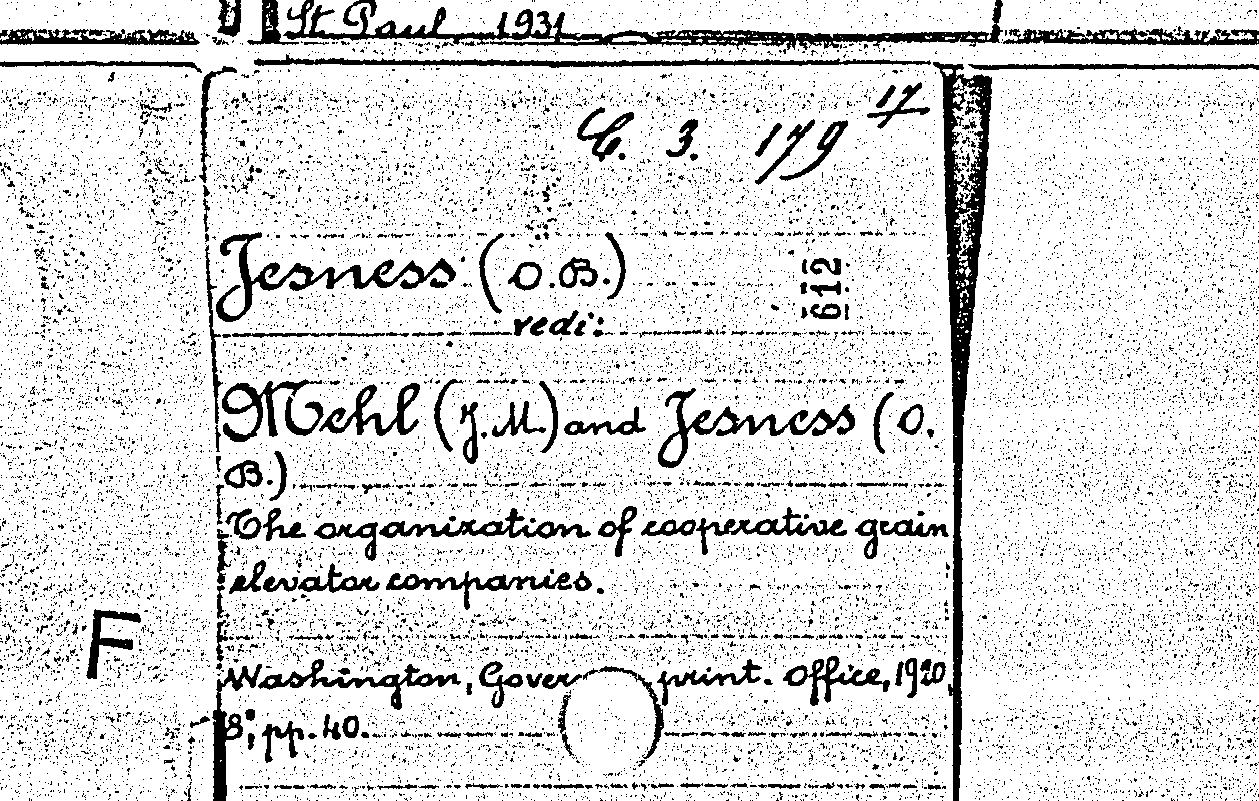 St. Paul 1931
C. 3. 179 17
Jesness (O.B.)
612
vedi:
Mehl (J.M.) and Jesness (O.
B.)
The organization of cooperative grain
elevator companies.
F
Washington, Gover print. Office, 1920,
8°, pp. 40.